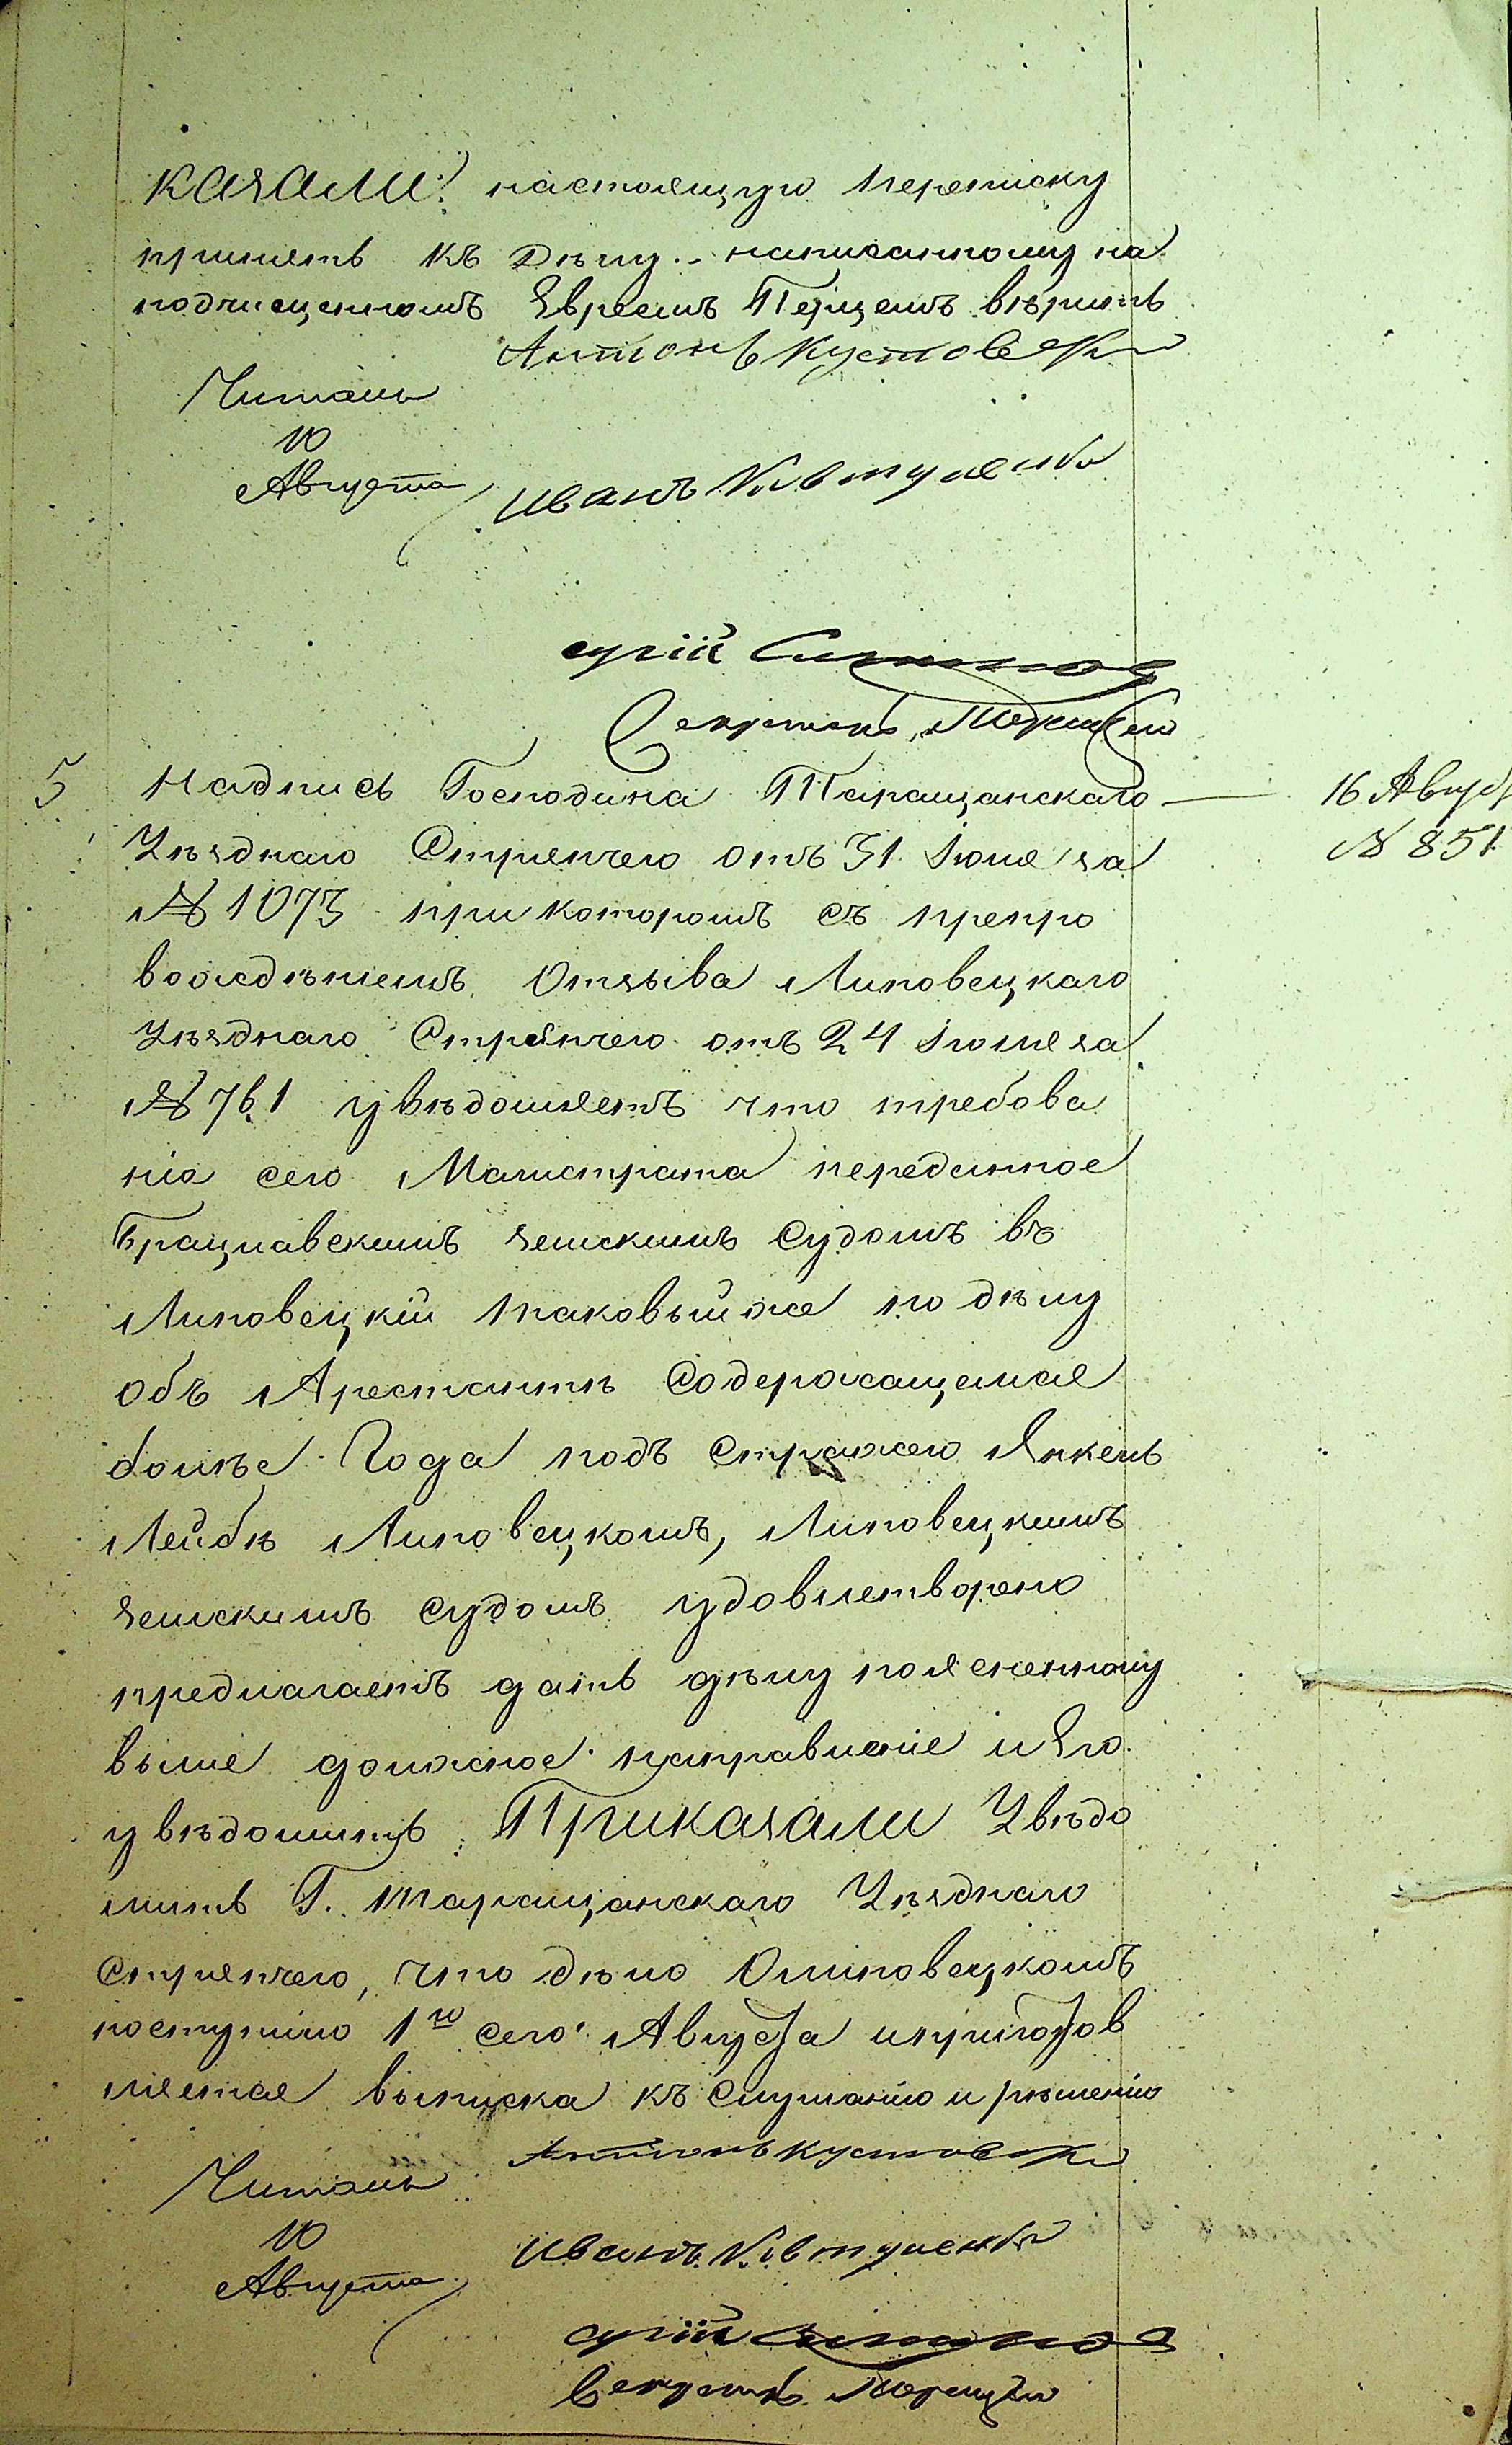 казали: настоящую переписку
принять къ Дѣлу.. написанному на
подчищенномъ Евреемъ Перцемъ
Антонъ Кустовскій
Читалъ
10
Августа
Иванъ Ковтуненко
Сергій
Секретарь
5 Надпись Господина Таращанскаго — 16 Авгус
Уѣзднаго Стряпчего отъ 31 Іюля за № 851
№ 1073 при которомъ съ препро
вождѣніемъ Отзыва Липовецкаго
Уѣзднаго Стряпчего отъ 24 Іюля за
№ 761 увѣдомляетъ что требова
ніа сего Магистрата переданное
Брацлавскимъ земскимъ Судомъ въ
Липовецкій таковый же по дѣлу
объ Арестантѣ Содержащемся
болѣе Года подъ Стражею Янкель
Лейбѣ Липовецкомъ, Липовецкимъ
земскимъ Судомъ удовлетворено
предлагаетъ дать дѣлу поясненному
выше должное направленіе и Его
увѣдомить Приказали Увѣдо
мить Г. Таращанскаго Уѣзднаго
Стряпчего, что дѣло Олиповецкомъ
поступило 1го сего Августа иприготов
ляется выписка къ Слушанію и рѣшенію
Антонъ Кустовскій
Читалъ
10
Августа
Иванъ Ковтуненко
Сергій
Секретарь